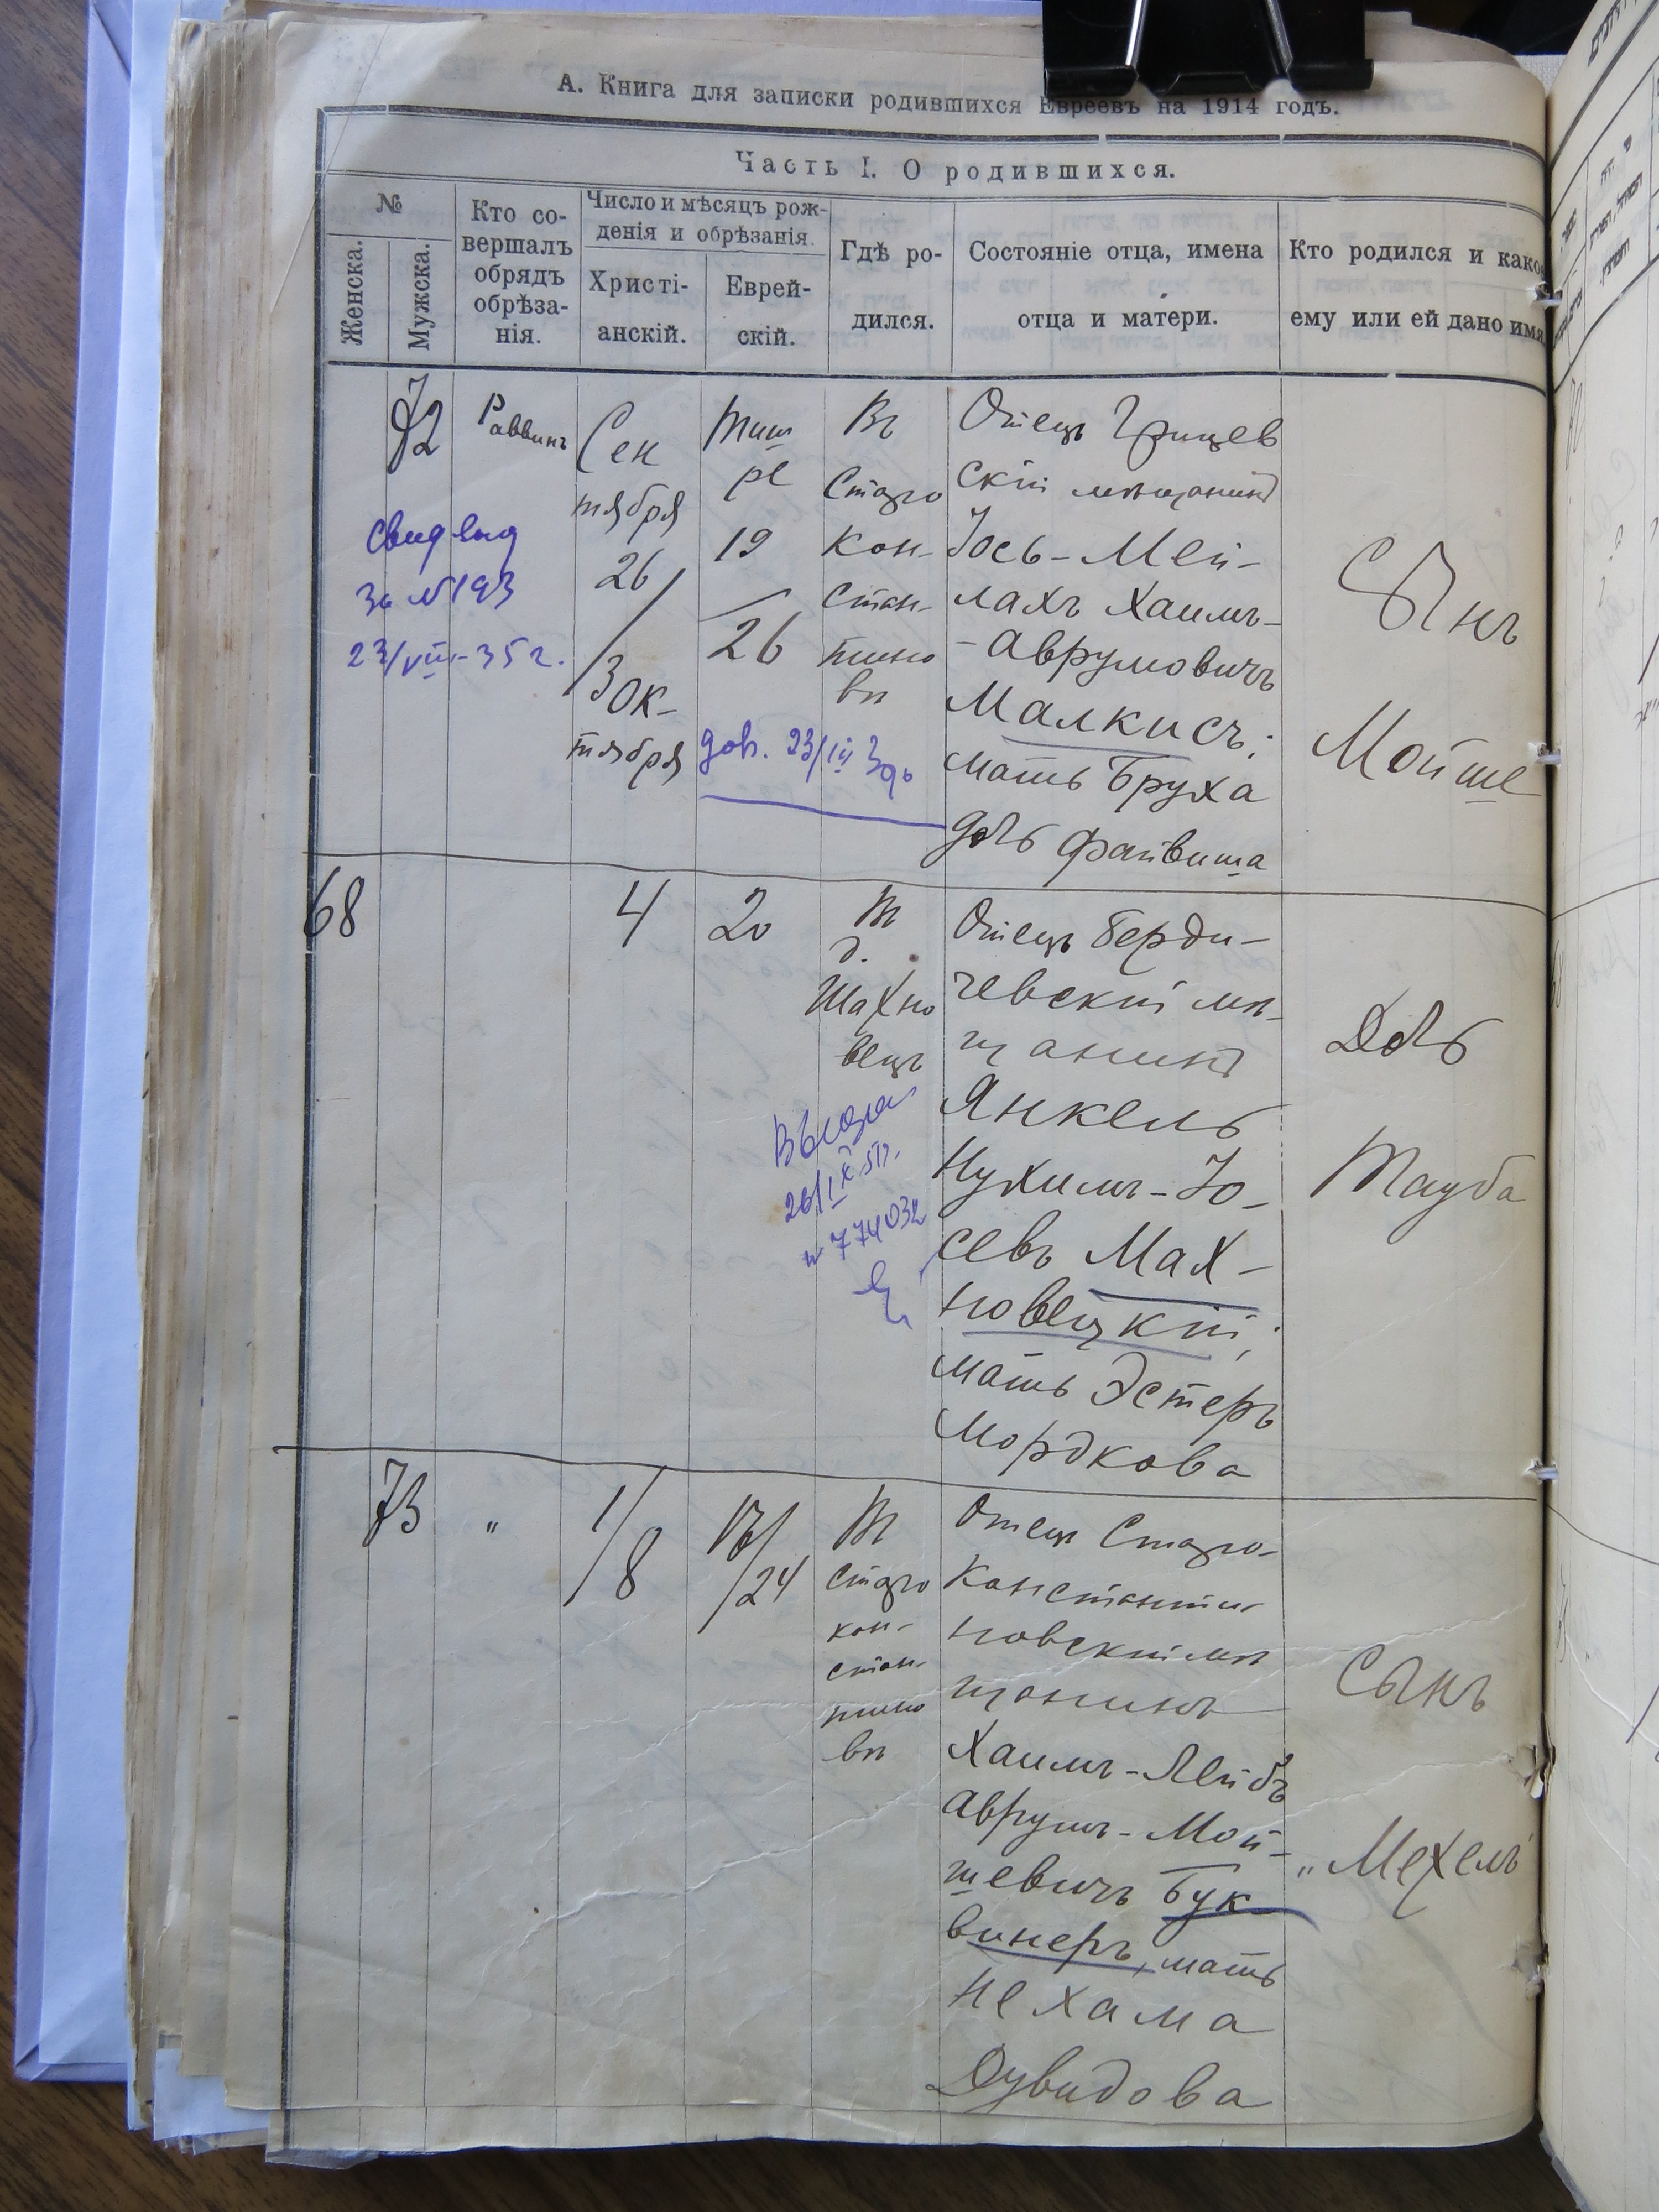 А. Книга для записки родившихся Евреевъ на 1914 годъ.
Часть I. О родившихся.
№
Женска.
Мужска.
Кто со-
вершалъ
обрядъ
обрѣза-
нія.
Число и мѣсяцъ рож-
денія и обрѣзанія.
Христі-
анскій.
Еврей-
скій.
Гдѣ ро-
дился.
Состояніе отца, имена
отца и матери.
Кто родился и какое
ему или ей дано имя
72
Раввинъ
Сен
тября
26/
/3 Ок-
тября
Тиш
ре
19
26
Въ
Старо
кон-
стан-
тино
вѣ
Отецъ Грицев
скій мѣщанинъ
Іось-Мей-
лахъ Хаимъ-
-Аврумовичъ
Малкисъ;
мать Бруха
дочь Файвиша
Сынъ
Мойше
за №193
23/VIII-35 г.
68
4
20
Въ
д.
Махно
вецъ
Отецъ Берди-
чевскій мѣ-
щанинъ
Янкель
Нухимъ-Іо-
севъ Мах-
новецкій;
мать Эстеръ
Мордкова
Дочь
Тауба
№ 774032
73
"
1/
/8
17/
/24
Въ
Старо
кон-
стан-
тино
вѣ
Отецъ Старо-
константи-
новскій мѣ
щанинъ
Хаимъ-Лейбъ
Аврумъ-Мой-
шевичъ Бук-
винеръ, мать
Нехама
Дувидова
Сынъ
"Мехель